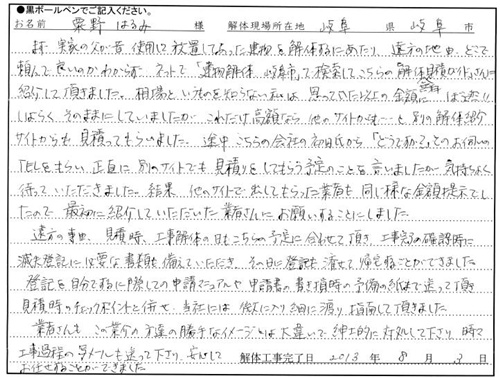 ●黒ボールペンでご記入ください。
お名前 粟野 はるみ 様 解体現場所在地 岐阜 県 岐阜 市
まず、実家の父が昔、使用して放置してあった建物を解体するにあたり、遠方の地の中、どこで
頼んで良いのかわからず、ネットで「建物解体 岐阜市」で検索してこちらの解体見積サイトさんに
紹介して頂きました。相場というものを知らない私は、思っていた以上の金額に
しばらくそのままにしていましたが、これだけ高額なら他のサイトからも…と別の解体紹介
サイトからも見積ってもらいました。途中こちらの会社の初田氏から「どうですか?」とのお伺いの
TELをもらい、正直に別のサイトでも見積りをしてもらう予定のことを言いましたが、気持ちよく
待っていただきました。結果、他のサイトで出してもらった業者も同じ様な金額提示でし
たので、最初に紹介していただいた業者さんにお願いすることにしました。
遠方の事由、見積時、工事解体の日もこちらの予定に合わせて頂き、工事完了の確認時に
滅失登記に必要な書類も備えていただき、その日に登記も済せて帰宅することができました。
登記を自分でするに際しての申請マニュアルや申請書の書き損時の予備の紙まで送って頂き
見積時のチェックポイントと併せ、当社には微に入り細に渡り指南して頂きました。
業者さんも、この業界の方達の勝手なイメージとは大違いで、紳士的に対処して下さり、時々
工事過程の写メールも送って下さり、安心して
お任せすることができました。
解体工事完了日 2013 年 8 月 3 日